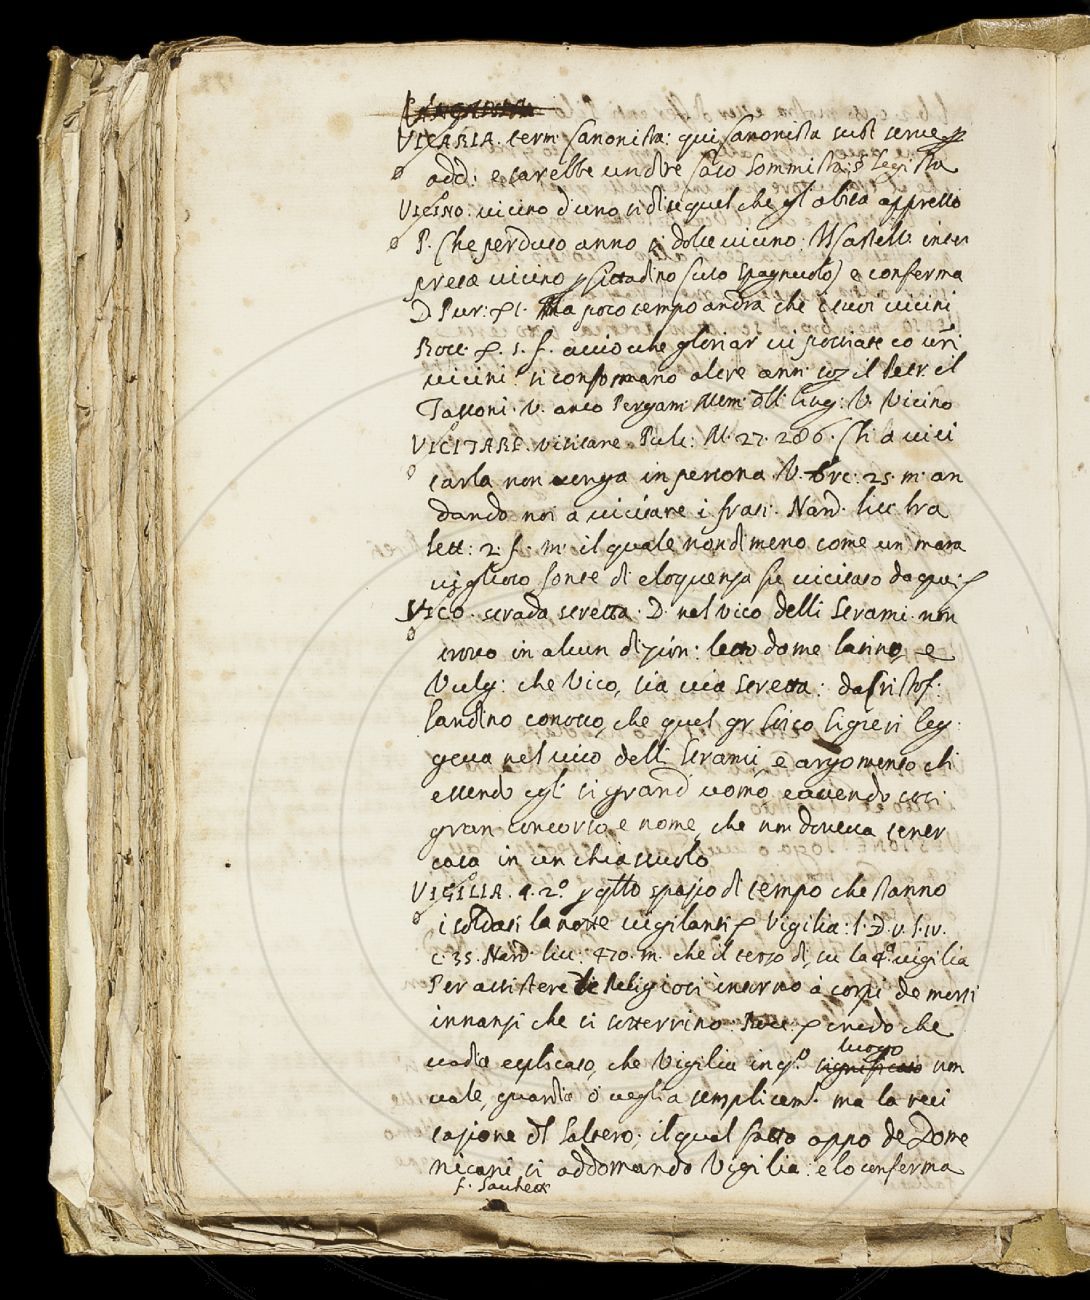 VICARIA. term: Canonista: qui Canonista sust serve p
add: e sarebbe un dire Caso Sommista, Legista
VICINO. vicino d'uno si dice quel che gl'abita appresso
P. Che perduto anno sì dolce vicino. Il Castelv. inter
preta vicino p Cittadino (uso Spagnuolo) e conferma
D. Pur: Ma poco tempo andrà che i tuoi vicini
Bocc. p. 1. f. acciò che gloriar vi possiate co vri
vicini: si conformano altre ann: il
Tassoni. V. anco Pergam: Mem: dll ling: V. Vicino
VICITARE. visitare Pulc: M. 27. 286. Ch'a vici
tarla non venga in persona V. Brc: 25. m. an
dando noi a vicitare i frati. Nard. liv: tra
lett: 2. f. m. il quale nondimeno come un mara
viglioso fonte di eloquenza fu vicitato da
VICO. strada stretta. D. nel vico delli Strami. non
trovo in alcun dizion: letto dome latino, e
Vulg: che Vico, sia via stretta: da Cristof:
Landino conosco, che quel gr Loico Sigieri leg
geva nel vico delli Strami e argomento ch
essendo egli sì grand' uomo e avendo così
gran concorso, e nome, che non doveva tener
casa in un chiassuolo
VIGILIA. q. 2.º spazio di tempo che stanno
i soldati la notte vigilanti Vigilia: l. D. v. l. iv.
c. 35. Nard. liv: 470. m. che il terzo di, su la 4ª vigilia
Per assistere de Religiosi intorno a corpi de morti
innanzi che si sotterrino. Bocc. credo che
vada esplicato, che Vigilia in q.º luogo non
vale, guardia ò veglia semplicem.te ma la reci
tazione dl Saltero; il qual fatto appo de Dome
nicani si addomanda Vigilia: e lo conferma